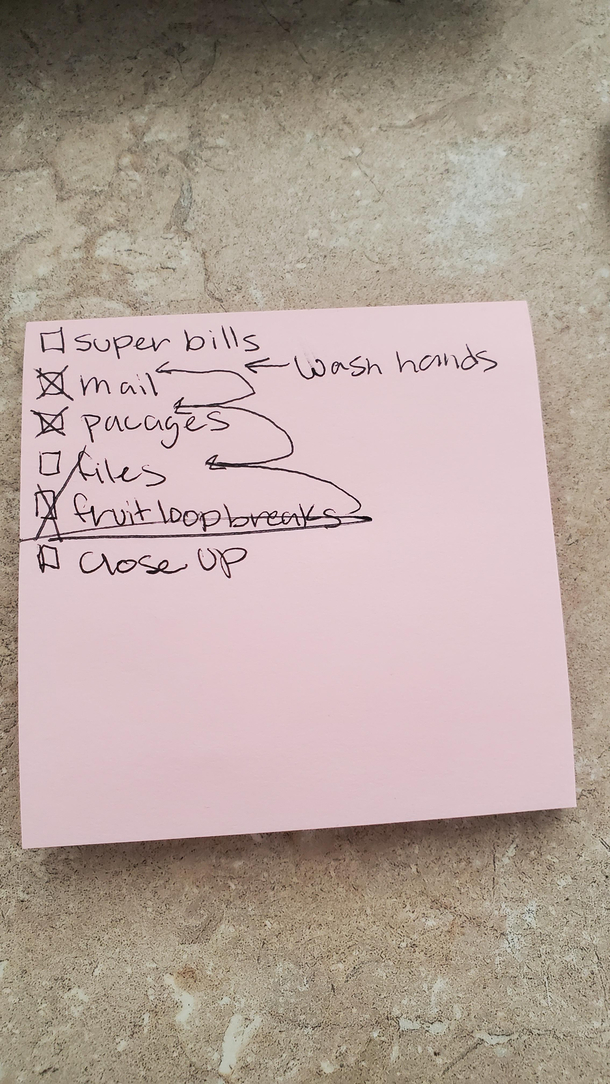 super bills
wash hands
mail
pacages
files
fruit loop breaks
close up